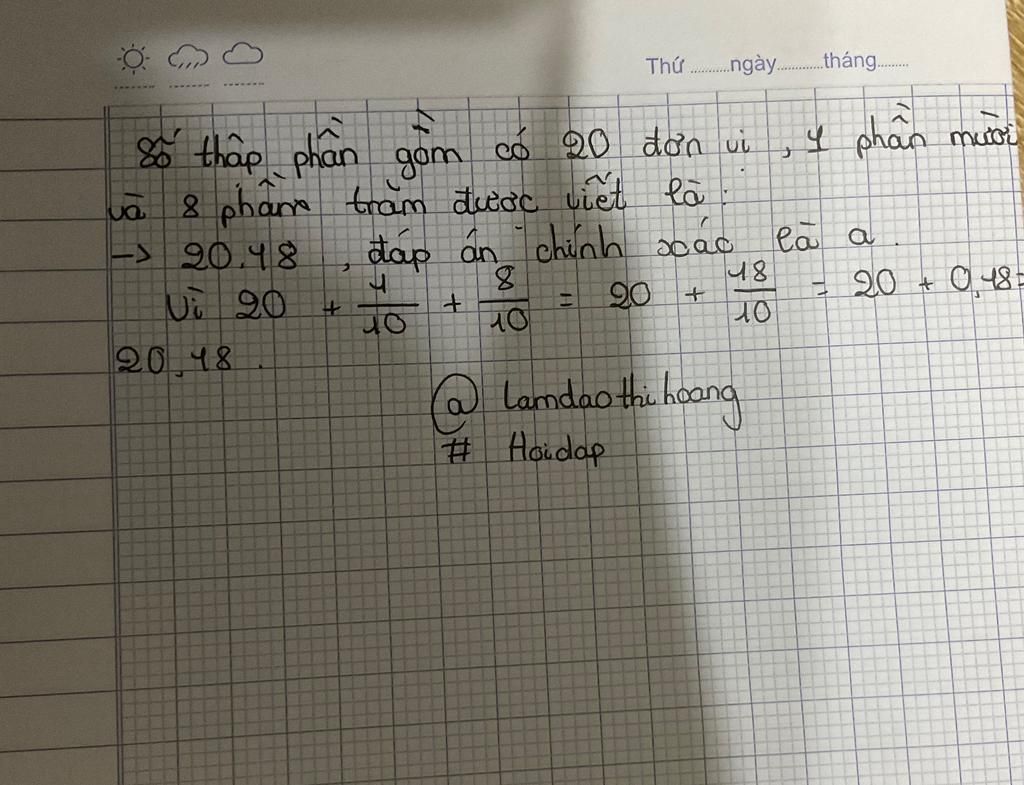 Thứ ..........ngày...........tháng........
Số thập phần gồm có 20 đơn vi , 1 phần mười
và 8 phầm trăm được viết là :
-> 20.18 , đáp án chính xác là a .
Vì 20 + 1/10 + 8/10 = 20 + 18/10 = 20 + 0,18 =
20,18 .
@ lamdaothihoang
# Hoidap